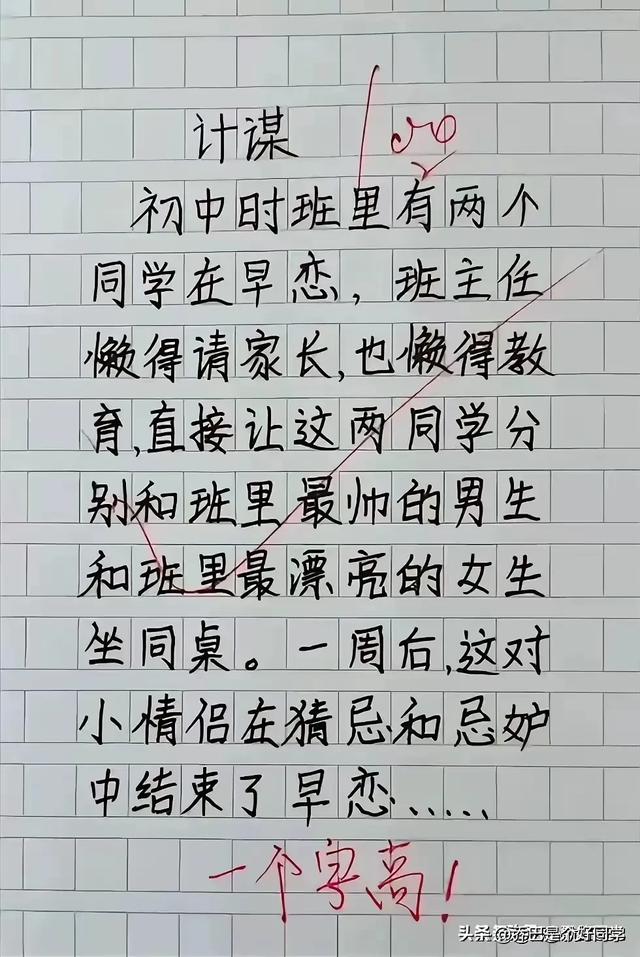 计谋 100
初中时班里有两个
同学在早恋，班主任
懒得请家长,也懒得教
育,直接让这两同学分
别和班里最帅的男生
和班里最漂亮的女生
坐同桌。一周后,这对
小情侣在猜忌和忌妒
中结束了早恋.....
一个字高!
头条